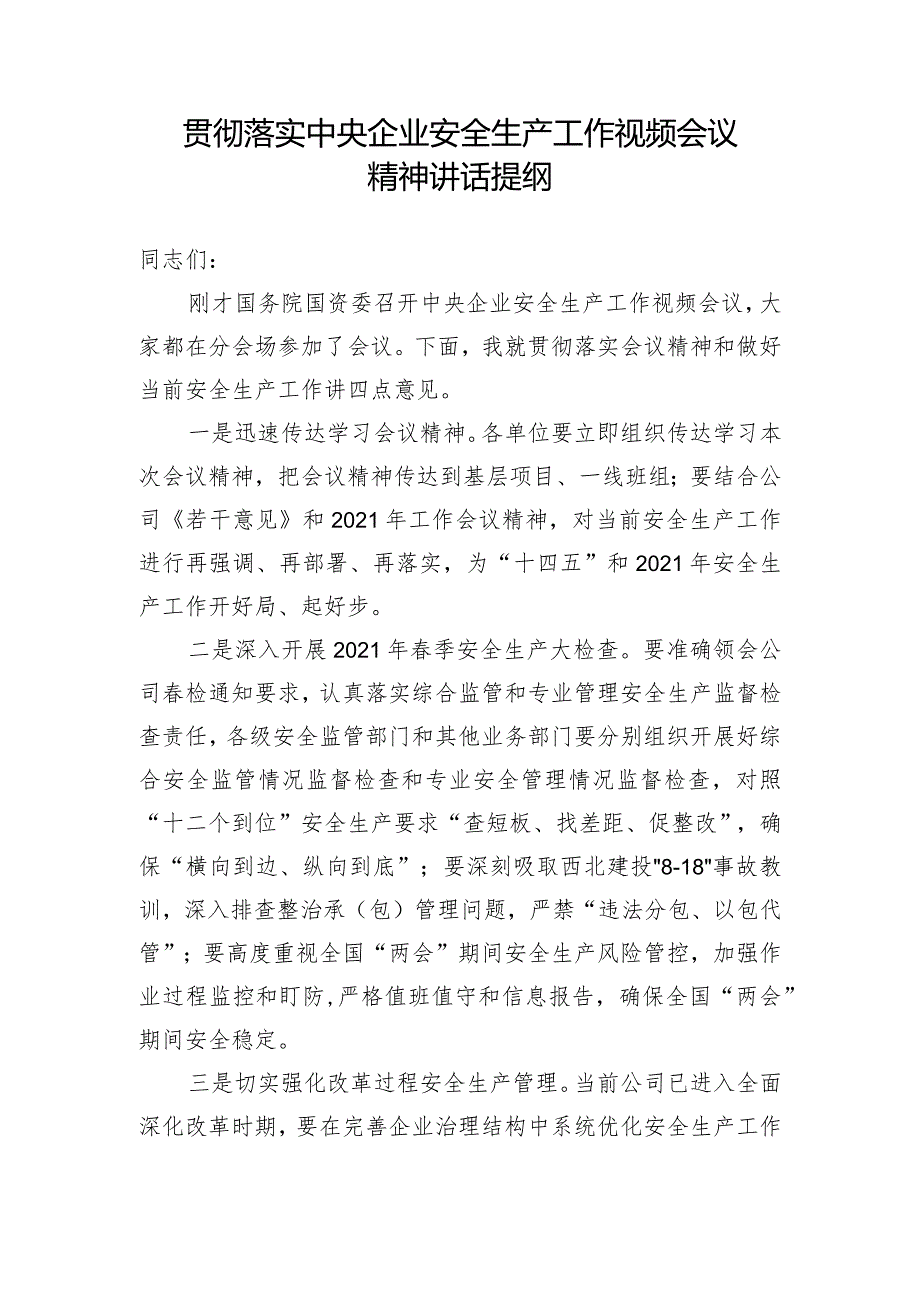 贯彻落实中央企业安全生产工作视频会议
精神讲话提纲
同志们：
刚才国务院国资委召开中央企业安全生产工作视频会议，大
家都在分会场参加了会议。下面，我就贯彻落实会议精神和做好
当前安全生产工作讲四点意见。
一是迅速传达学习会议精神。各单位要立即组织传达学习本
次会议精神，把会议精神传达到基层项目、一线班组；要结合公
司《若干意见》和2021年工作会议精神，对当前安全生产工作
进行再强调、再部署、再落实，为“十四五”和2021年安全生
产工作开好局、起好步。
二是深入开展2021年春季安全生产大检查。要准确领会公
司春检通知要求，认真落实综合监管和专业管理安全生产监督检
查责任，各级安全监管部门和其他业务部门要分别组织开展好综
合安全监管情况监督检查和专业安全管理情况监督检查，对照
“十二个到位”安全生产要求“查短板、找差距、促整改”，确
保“横向到边、纵向到底”；要深刻吸取西北建投"8-18"事故教
训，深入排查整治承（包）管理问题，严禁“违法分包、以包代
管”；要高度重视全国“两会”期间安全生产风险管控，加强作
业过程监控和盯防,严格值班值守和信息报告，确保全国“两会”
期间安全稳定。
三是切实强化改革过程安全生产管理。当前公司已进入全面
深化改革时期，要在完善企业治理结构中系统优化安全生产工作